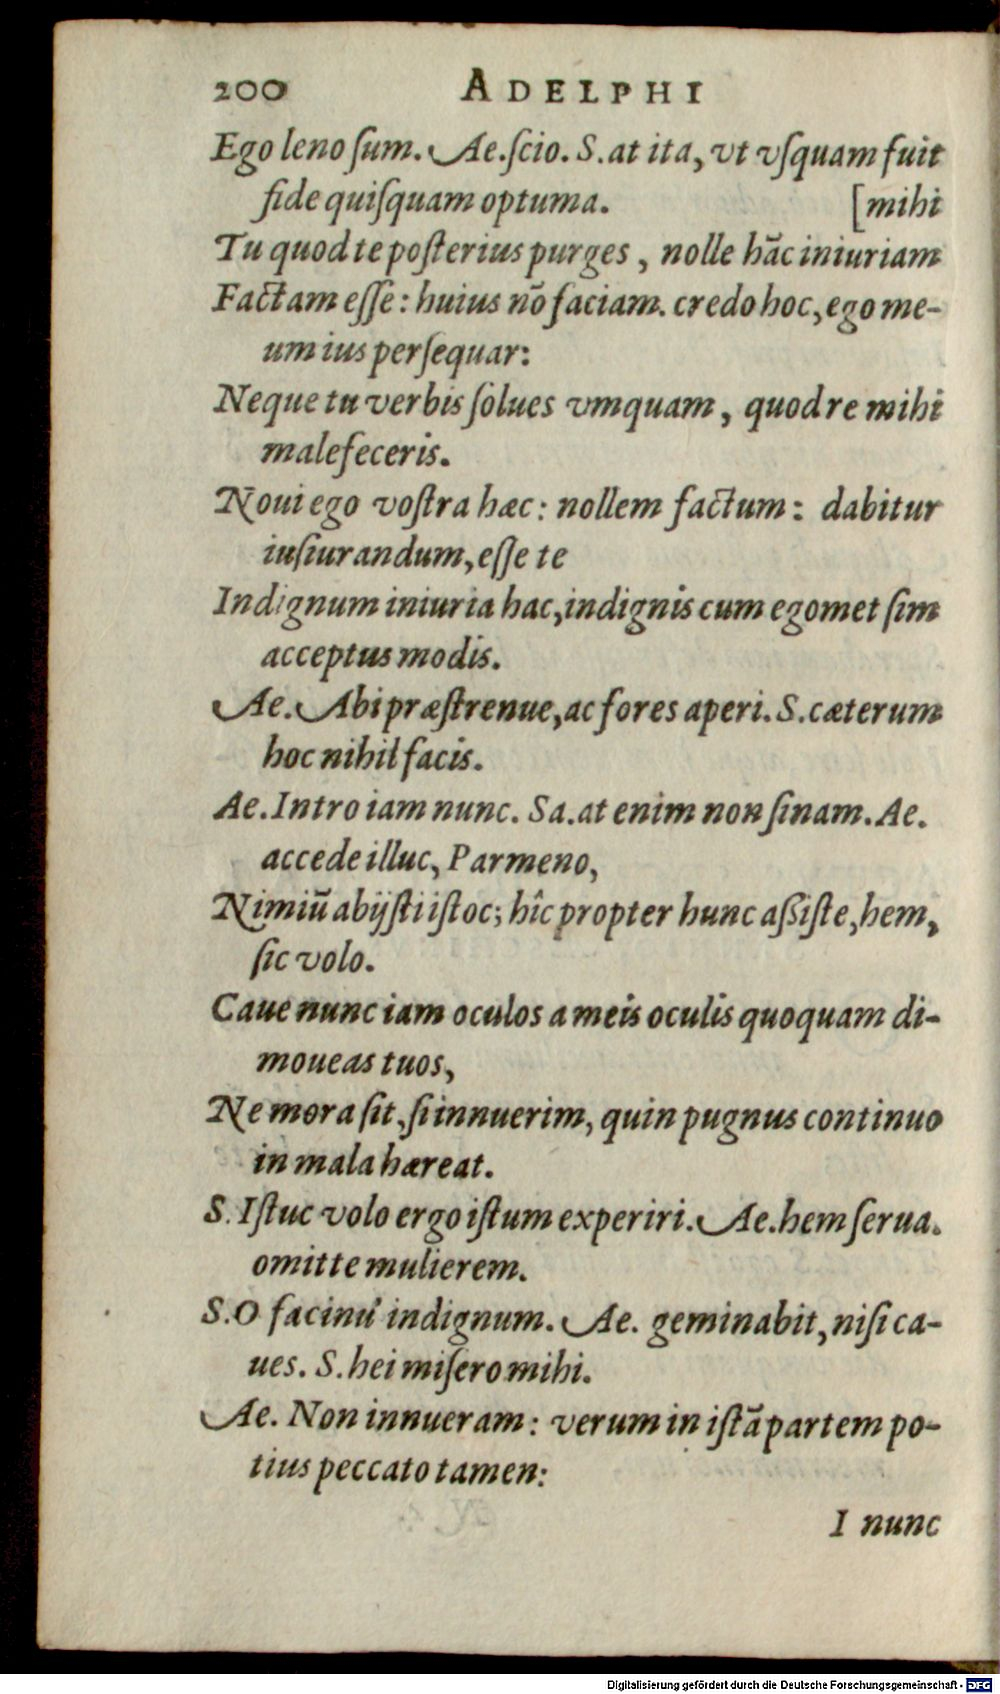 200 ADELPHI
Ego leno ſum. Ae. ſcio. S. at ita, vt vſquam fuit
fide quiſquam optuma. [mihi
Tu quod te poſterius purges, nolle hãc iniuriam
Factam eſſe: huius nõ faciam. credo hoc, ego me-
um ius perſequar:
Neque tu verbis ſolues vmquam, quod re mihi
malefeceris.
Noui ego voſtra hæc: nollem factum: dabitur
iuſiurandum, eſſe te
Indignum iniuria hac, indignis cum egomet ſim
acceptus modis.
Ae. Abi præſtrenue, ac fores aperi. S. cæterum
hoc nihil facis.
Ae. Intro iam nunc. Sa. at enim non ſinam. Ae.
accede illuc, Parmeno,
Nimiũ abijſti iſtoc; hîc propter hunc aßiſte, hem,
ſic volo.
Caue nunc iam oculos a meis oculis quoquam di-
moueas tuos,
Ne mora ſit, ſi innuerim, quin pugnus continuo
in mala hæreat.
S. Iſtuc volo ergo iſtum experiri. Ae. hem ſerua.
omitte mulierem.
S. O facinu' indignum. Ae. geminabit, niſi ca-
ues. S. hei miſero mihi.
Ae. Non innueram: verum in iſtã partem po-
tius peccato tamen:
I nunc
Digitalisierung gefördert durch die Deutsche Forschungsgemeinschaft - DFG